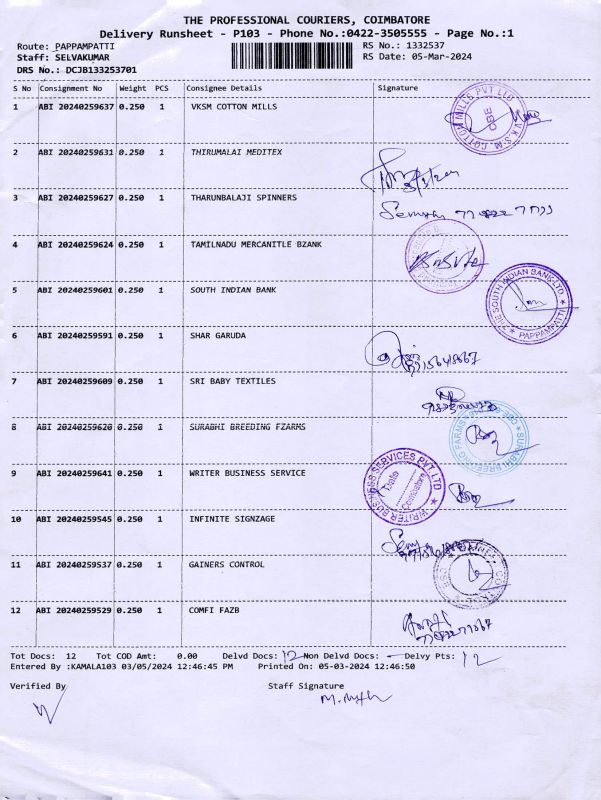 THE PROFESSIONAL COURIERS, COIMBATORE
Delivery Runsheet - P103 - Phone No.:0422-3505555 - Page No.:1
Route: PAPPAMPATTI RS No.: 1332537
Staff: SELVAKUMAR RS Date: 05-Mar-2024
DRS No.: DCJB133253701
S No Consignment No Weight PCS Consignee Details Signature
1 ABI 20240259637 0.250 1 VKSM COTTON MILLS
V.K.S.M. COTTON MILLS PVT LTD CBE
2 ABI 20240259631 0.250 1 THIRUMALAI MEDITEX
3 ABI 20240259627 0.250 1 THARUNBALAJI SPINNERS
4 ABI 20240259624 0.250 1 TAMILNADU MERCANTILE BZANK
5 ABI 20240259601 0.250 1 SOUTH INDIAN BANK
THE SOUTH INDIAN BANK LTD ★ PAPPAMPATTI ★
6 ABI 20240259591 0.250 1 SHAR GARUDA
7 ABI 20240259609 0.250 1 SRI BABY TEXTILES
8 ABI 20240259620 0.250 1 SURABHI BREEDING FZARMS
SURABI BREEDING FARMS
9 ABI 20240259641 0.250 1 WRITER BUSINESS SERVICE
WRITER BUSINESS SERVICES PVT LTD Date Coimbatore
10 ABI 20240259545 0.250 1 INFINITE SIGNZAGE
11 ABI 20240259537 0.250 1 GAINERS CONTROL
12 ABI 20240259529 0.250 1 COMFI FAZB
Tot Docs: 12 Tot COD Amt: 0.00 Delvd Docs: 12 Non Delvd Docs: - Delvy Pts: 12
Entered By :KAMALA103 03/05/2024 12:46:45 PM Printed On: 05-03-2024 12:46:50
Verified By Staff Signature